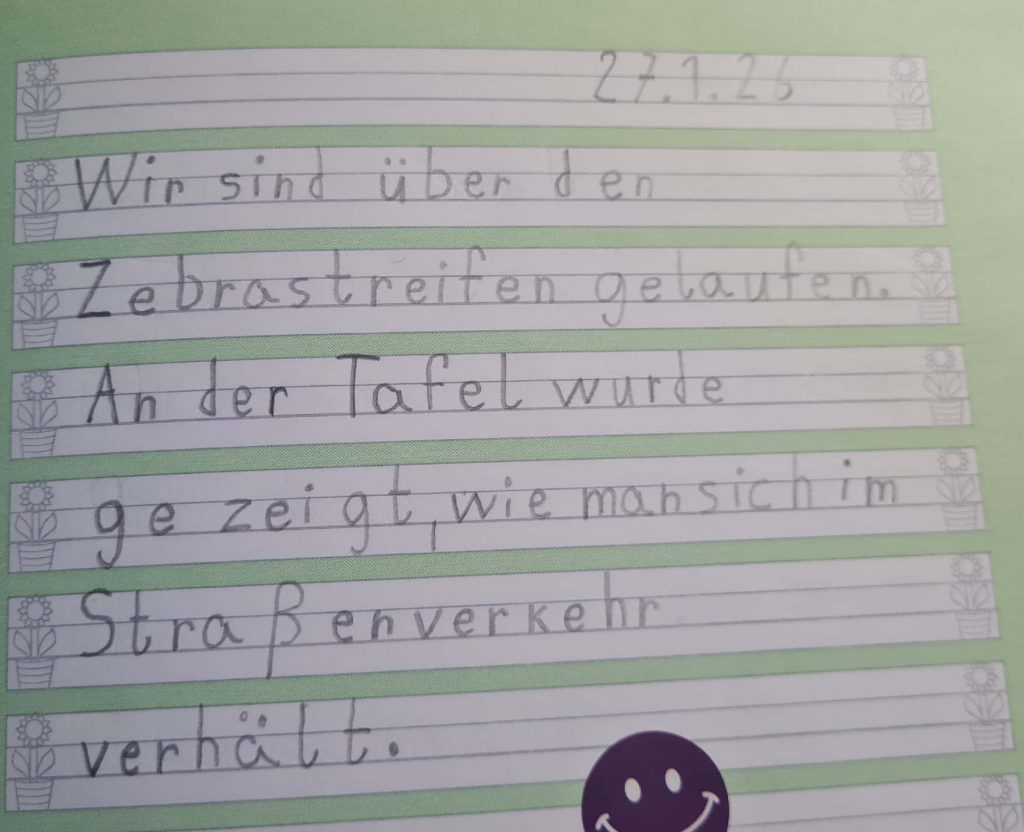 27.1.26
Wir sind über den
Zebrastreifen gelaufen.
An der Tafel wurde
gezeigt, wie man sich im
Straßenverkehr
verhält.